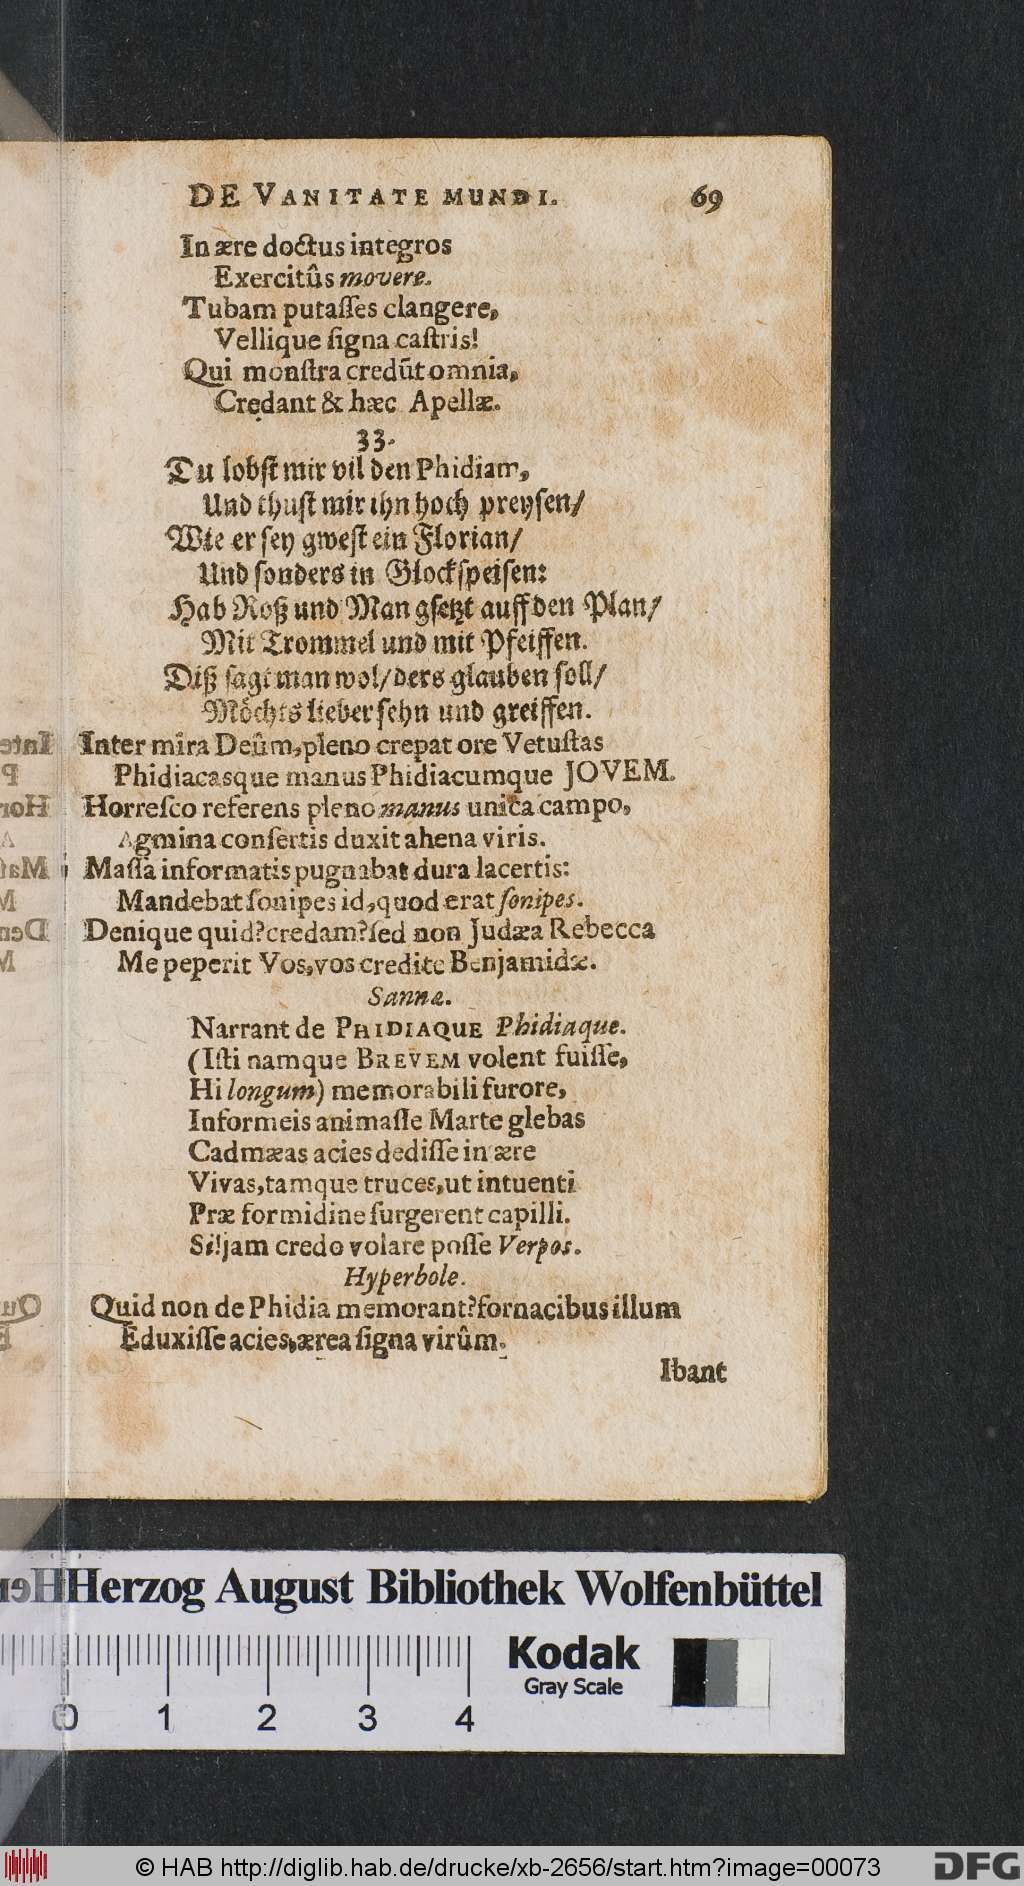 DE VANITATE MUNDI. 69
In ære doctus integros
Exercitûs movere.
Tubam putaſſes clangere,
Vellique ſigna caſtris!
Qui monſtra credūt omnia,
Credant & hæc Apellæ.
33.
Du lobſt mir vil den Phidiam,
Und thuſt mir ihn hoch preyſen/
Wie er ſey gweſt ein Florian/
Und ſonders in Glockſpeiſen:
Hab Roß und Man gſetzt auff den Plan/
Mit Trommel und mit Pfeiffen.
Diß ſagt man wol/ders glauben ſoll/
Möchts lieber ſehn und greiffen.
Inter mira Deûm,pleno crepat ore Vetuſtas
Phidiacasque manus Phidiacumque JOVEM.
Horreſco referens pleno manus unica campo,
Agmina conſertis duxit ahena viris.
Maſſa informatis pugnabat dura lacertis:
Mandebat ſonipes id,quod erat ſonipes.
Denique quid?credam?ſed non Judæa Rebecca
Me peperit Vos,vos credite Benjamidæ.
Sannæ.
Narrant de PHIDIAQUE Phidiaque.
(Iſti namque BREVEM volent fuiſſe,
Hi longum) memorabili furore,
Informeis animaſſe Marte glebas
Cadmæas acies dediſſe in ære
Vivas,tamque truces,ut intuenti
Præ formidine ſurgerent capilli.
Si!jam credo volare poſſe Verpos.
Hyperbole.
Quid non de Phidia memorant?fornacibus illum
Eduxiſſe acies,ærea ſigna virûm.
Ibant
Herzog August Bibliothek Wolfenbüttel
Kodak
Gray Scale
0 1 2 3 4
© HAB http://diglib.hab.de/drucke/xb-2656/start.htm?image=00073
DFG